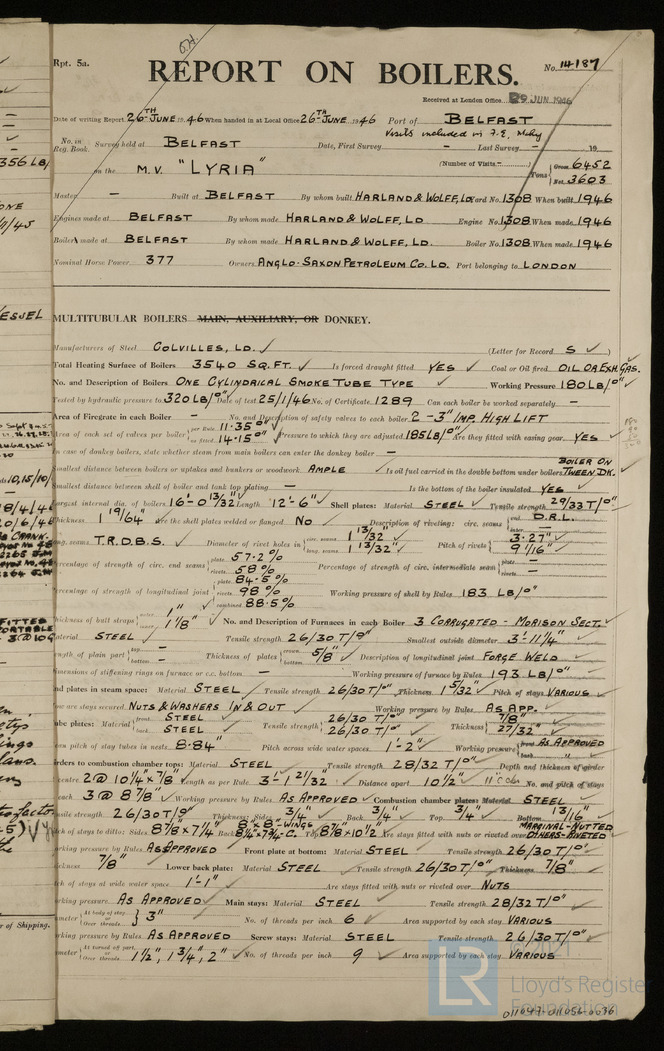 O.H.
Rpt. 5a.
REPORT ON BOILERS.
No. 14187
Received at London Office 29 JUN 1946
Date of writing Report 26TH JUNE 1946 When handed in at Local Office 26TH JUNE 1946 Port of BELFAST
Visits included in F.E. Mchy
No. in Reg. Book. Survey held at BELFAST Date, First Survey - Last Survey - 19
on the M.V. "LYRIA" (Number of Visits - ) Tons Gross 6452 Net 3603
Master - Built at BELFAST By whom built HARLAND & WOLFF, LD. Yard No. 1308 When built 1946
Engines made at BELFAST By whom made HARLAND & WOLFF, LD Engine No. 1308 When made 1946
Boilers made at BELFAST By whom made HARLAND & WOLFF, LD. Boiler No. 1308 When made 1946
Nominal Horse Power 377 Owners ANGLO-SAXON PETROLEUM CO. LD. Port belonging to LONDON
MULTITUBULAR BOILERS MAIN, AUXILIARY, OR DONKEY.
Manufacturers of Steel COLVILLES, LD. ✓ (Letter for Record S ✓ )
Total Heating Surface of Boilers 3540 SQ. FT. ✓ Is forced draught fitted YES ✓ Coal or Oil fired OIL OR EXH. GAS.
No. and Description of Boilers ONE CYLINDRICAL SMOKE TUBE TYPE ✓ Working Pressure 180 LB/□" ✓
Tested by hydraulic pressure to 320 LB/□" Date of test 25/1/46 No. of Certificate 1289 Can each boiler be worked separately -
Area of Firegrate in each Boiler - No. and Description of safety valves to each boiler 2 - 3" IMP. HIGH LIFT
Area of each set of valves per boiler per Rule 11.35□" as fitted 14.15□" Pressure to which they are adjusted 185 LB/□" Are they fitted with easing gear YES ✓
In case of donkey boilers, state whether steam from main boilers can enter the donkey boiler -
Smallest distance between boilers or uptakes and bunkers or woodwork AMPLE Is oil fuel carried in the double bottom under boilers BOILER ON TWEEN DK.
Smallest distance between shell of boiler and tank top plating - Is the bottom of the boiler insulated YES
Largest internal dia. of boilers 16'-0 13/32" Length 12'-6" Shell plates: Material STEEL Tensile strength 29/33 T/□"
Thickness 1 19/64" Are the shell plates welded or flanged NO Description of riveting: circ. seams end D.R.L. inter. -
long. seams T.R.D.B.S. ✓ Diameter of rivet holes in circ. seams 1 13/32" long. seams 1 13/32" Pitch of rivets 3.27" 9 1/16"
Percentage of strength of circ. end seams plate 57.2% rivets 58% Percentage of strength of circ. intermediate seam plate - rivets -
Percentage of strength of longitudinal joint plate 84.5% rivets 98% combined 88.5% Working pressure of shell by Rules 183 LB/□"
Thickness of butt straps outer 1" inner 1 1/8" No. and Description of Furnaces in each Boiler 3 CORRUGATED - MORISON SECT.
Material STEEL Tensile strength 26/30 T/□" Smallest outside diameter 3'-11 1/4"
Length of plain part top - bottom - Thickness of plates crown bottom 5/8" Description of longitudinal joint FORGE WELD
Dimensions of stiffening rings on furnace or c.c. bottom - Working pressure of furnace by Rules 193 LB/□"
End plates in steam space: Material STEEL Tensile strength 26/30 T/□" Thickness 1 5/32" Pitch of stays VARIOUS
How are stays secured NUTS & WASHERS IN & OUT Working pressure by Rules AS APP.
Tube plates: Material front STEEL back STEEL Tensile strength 26/30 T/□" 26/30 T/□" Thickness 7/8" 27/32"
Mean pitch of stay tubes in nests 8.84" Pitch across wide water spaces 1'-2" Working pressure front AS APPROVED back "
Girders to combustion chamber tops: Material STEEL Tensile strength 28/32 T/□" Depth and thickness of girder
at centre 2 @ 10 1/4" x 7/8" Length as per Rule 3'-1 21/32" Distance apart 10 1/2" No. and pitch of stays
in each 3 @ 8 7/8" Working pressure by Rules AS APPROVED Combustion chamber plates: Material STEEL
Tensile strength 26/30 T/□" Thickness: Sides 3/4" Back 3/4" Top 3/4" Bottom 13/16"
Pitch of stays to ditto: Sides 8 7/8 x 7 1/4 Back 8" x 8" - WINGS Top 8 7/8 x 10 1/2 Are stays fitted with nuts or riveted over MARGINAL - NUTTED OTHERS - RIVETED
Working pressure by Rules AS APPROVED Front plate at bottom: Material STEEL Tensile strength 26/30 T/□"
Thickness 7/8" Lower back plate: Material STEEL Tensile strength 26/30 T/□" Thickness 7/8"
Pitch of stays at wide water space 1'-1" Are stays fitted with nuts or riveted over NUTS
Working pressure AS APPROVED Main stays: Material STEEL Tensile strength 28/32 T/□"
Diameter At body of stay or Over threads 3" No. of threads per inch 6 Area supported by each stay VARIOUS
Working pressure by Rules AS APPROVED Screw stays: Material STEEL Tensile strength 26/30 T/□"
Diameter At turned off part or Over threads 1 1/2", 1 3/4", 2" No. of threads per inch 9 Area supported by each stay VARIOUS
LR
Lloyd's Register
Foundation
011047-011056-0036